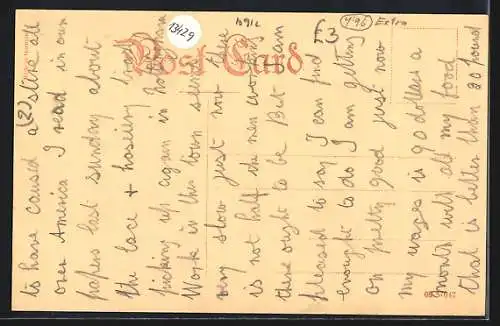 (2)
to have caused a stire all
over America I read in our
papers last sunday about
the lace + hosiery trade
picking up again in Nottingham
Work in this town seems
very slow just now there
is not half the men working
there ought to be But I am
pleased to say I can find
enought to do I am getting
on pretty good just now
my wages is 90 dollars a
month with all my food
that is better than 30 pound
Post Card
13/129
1912
£3
496
Extra